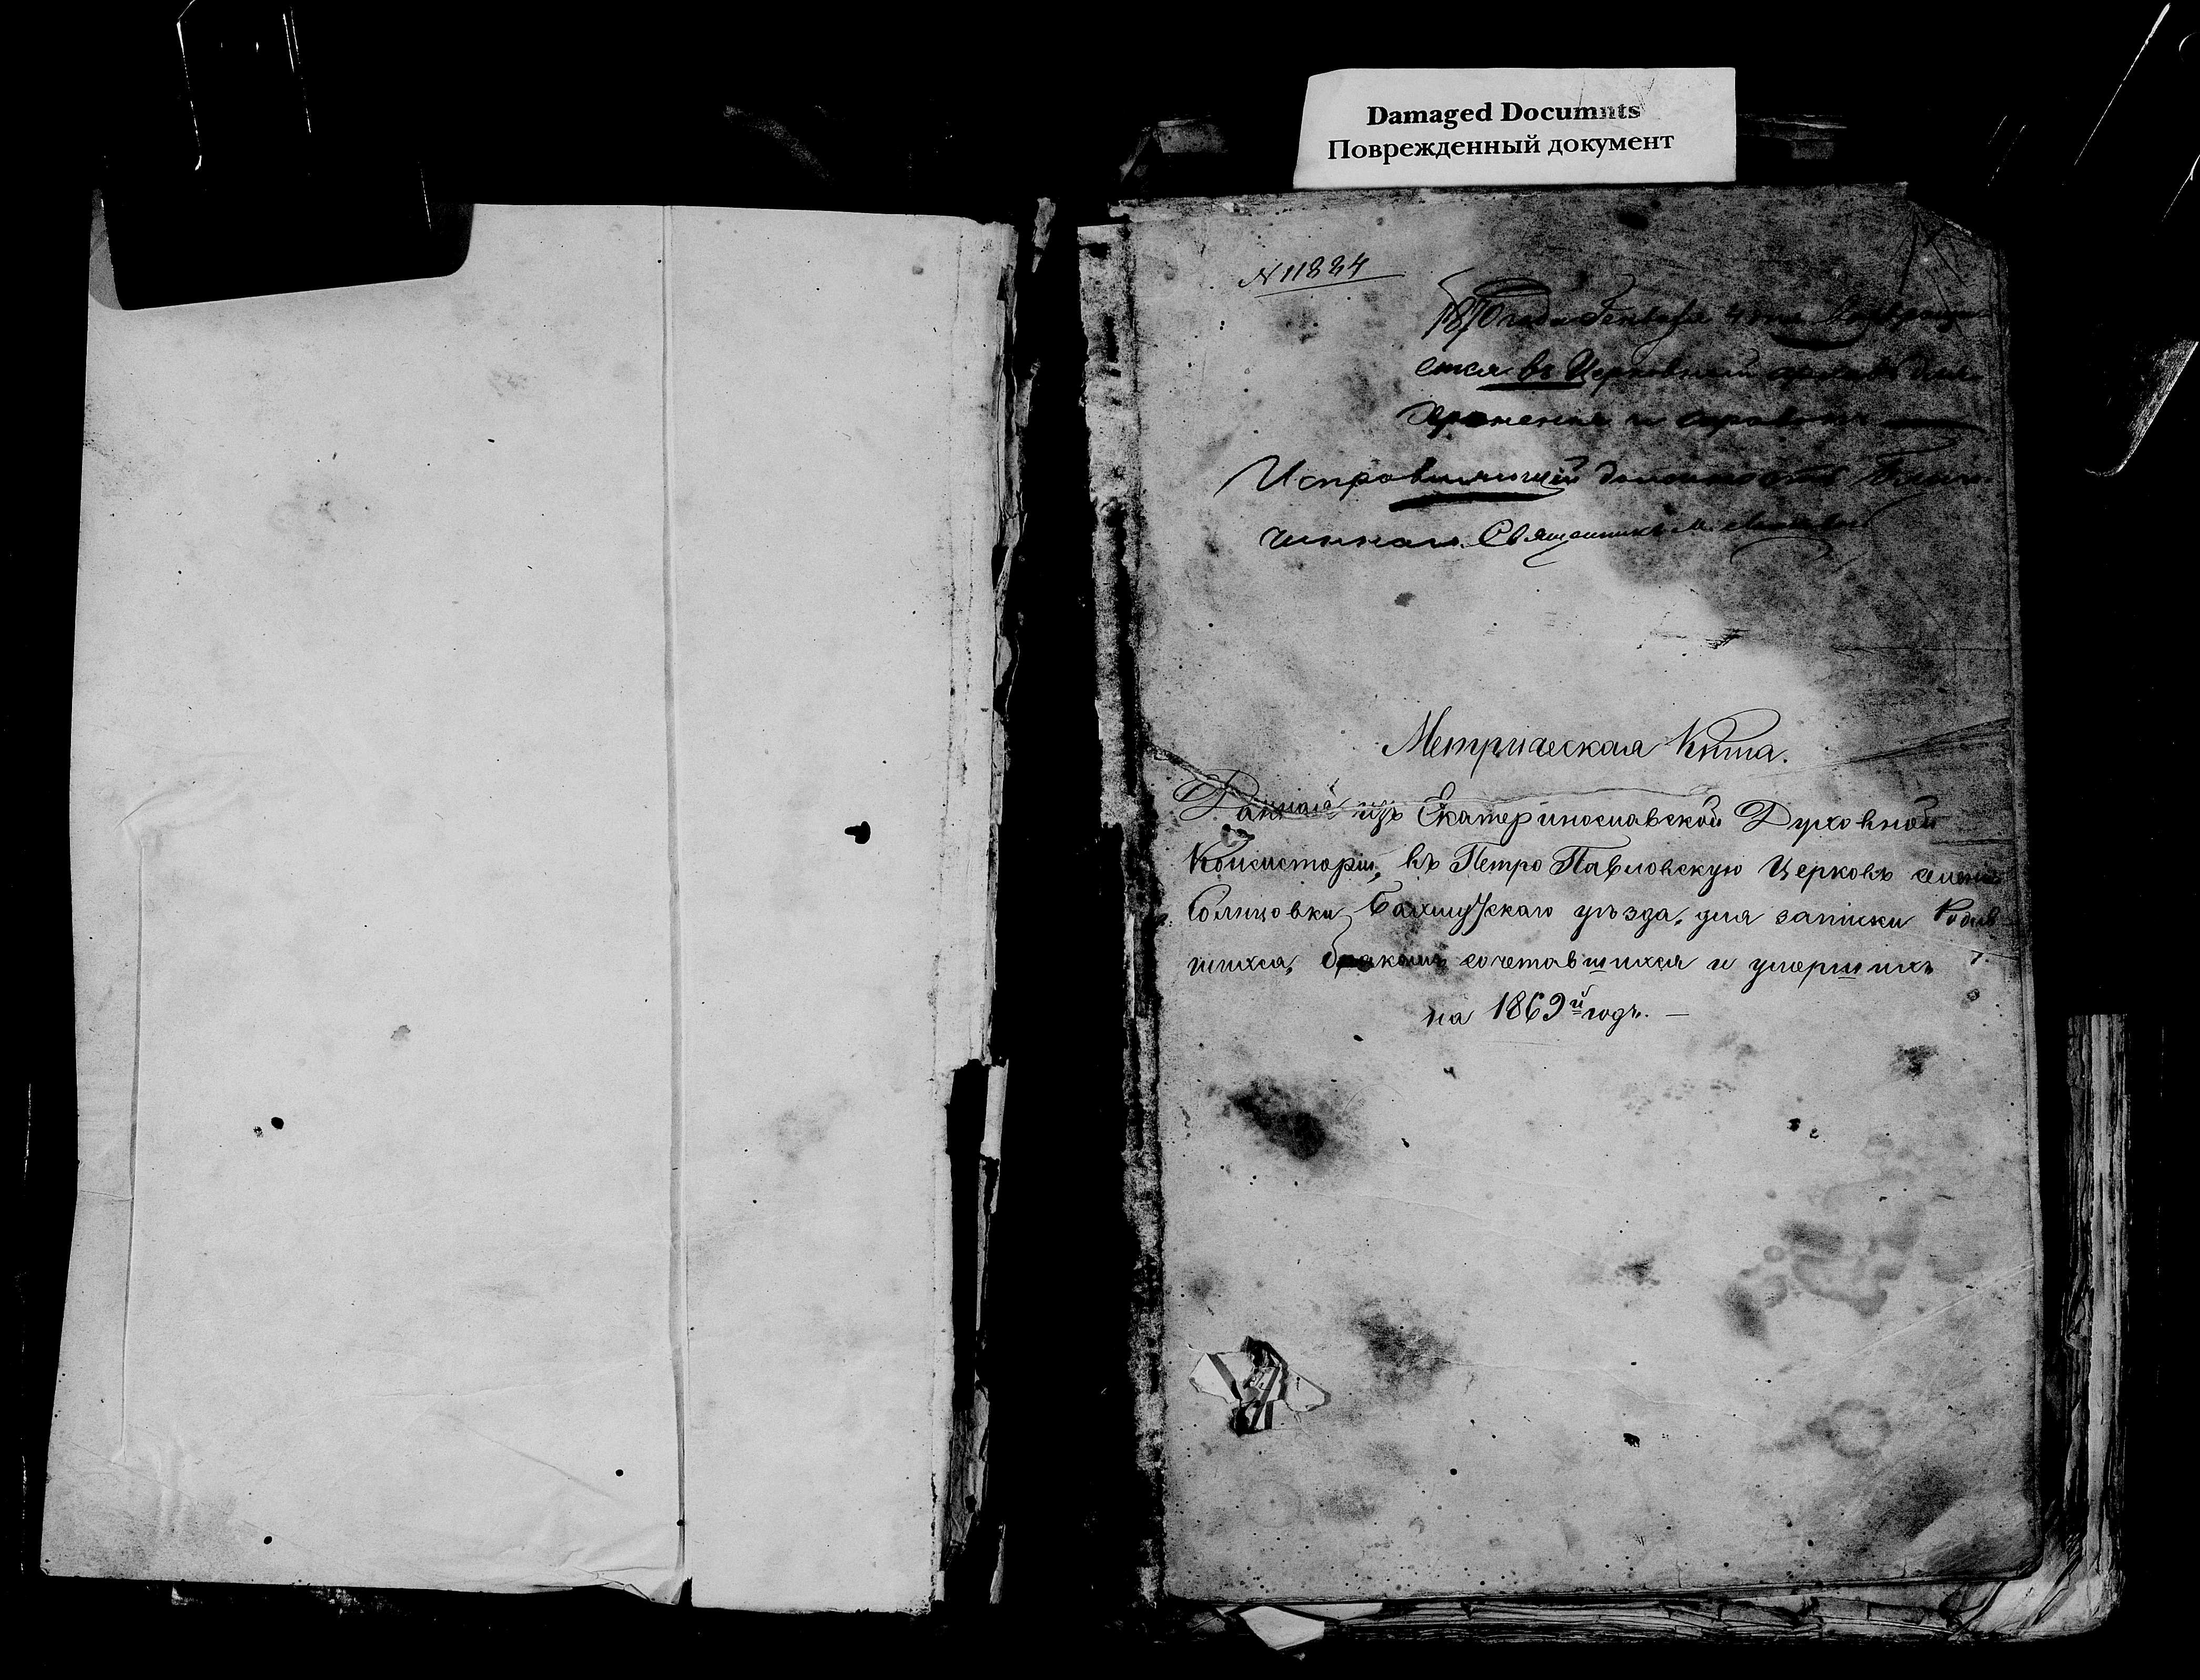 Damaged Documnts
Поврежденный документ
N 11834
1870 года Генваря 4 дня Возвраща-
ется въ Церковный архивъ для
храненія и справокъ
Исправляющій должность Благо-
чиннаго Священникъ
Метрическая Книга.
Данная изъ Екатеринославской Духовной
Консисторіи, въ Петро Павловскую Церковь
Солнцовки Бахмутскаго уѣзда, для записки Родив-
шихся, бракомъ сочетавшихся и умершихъ
на 1869й годъ. —